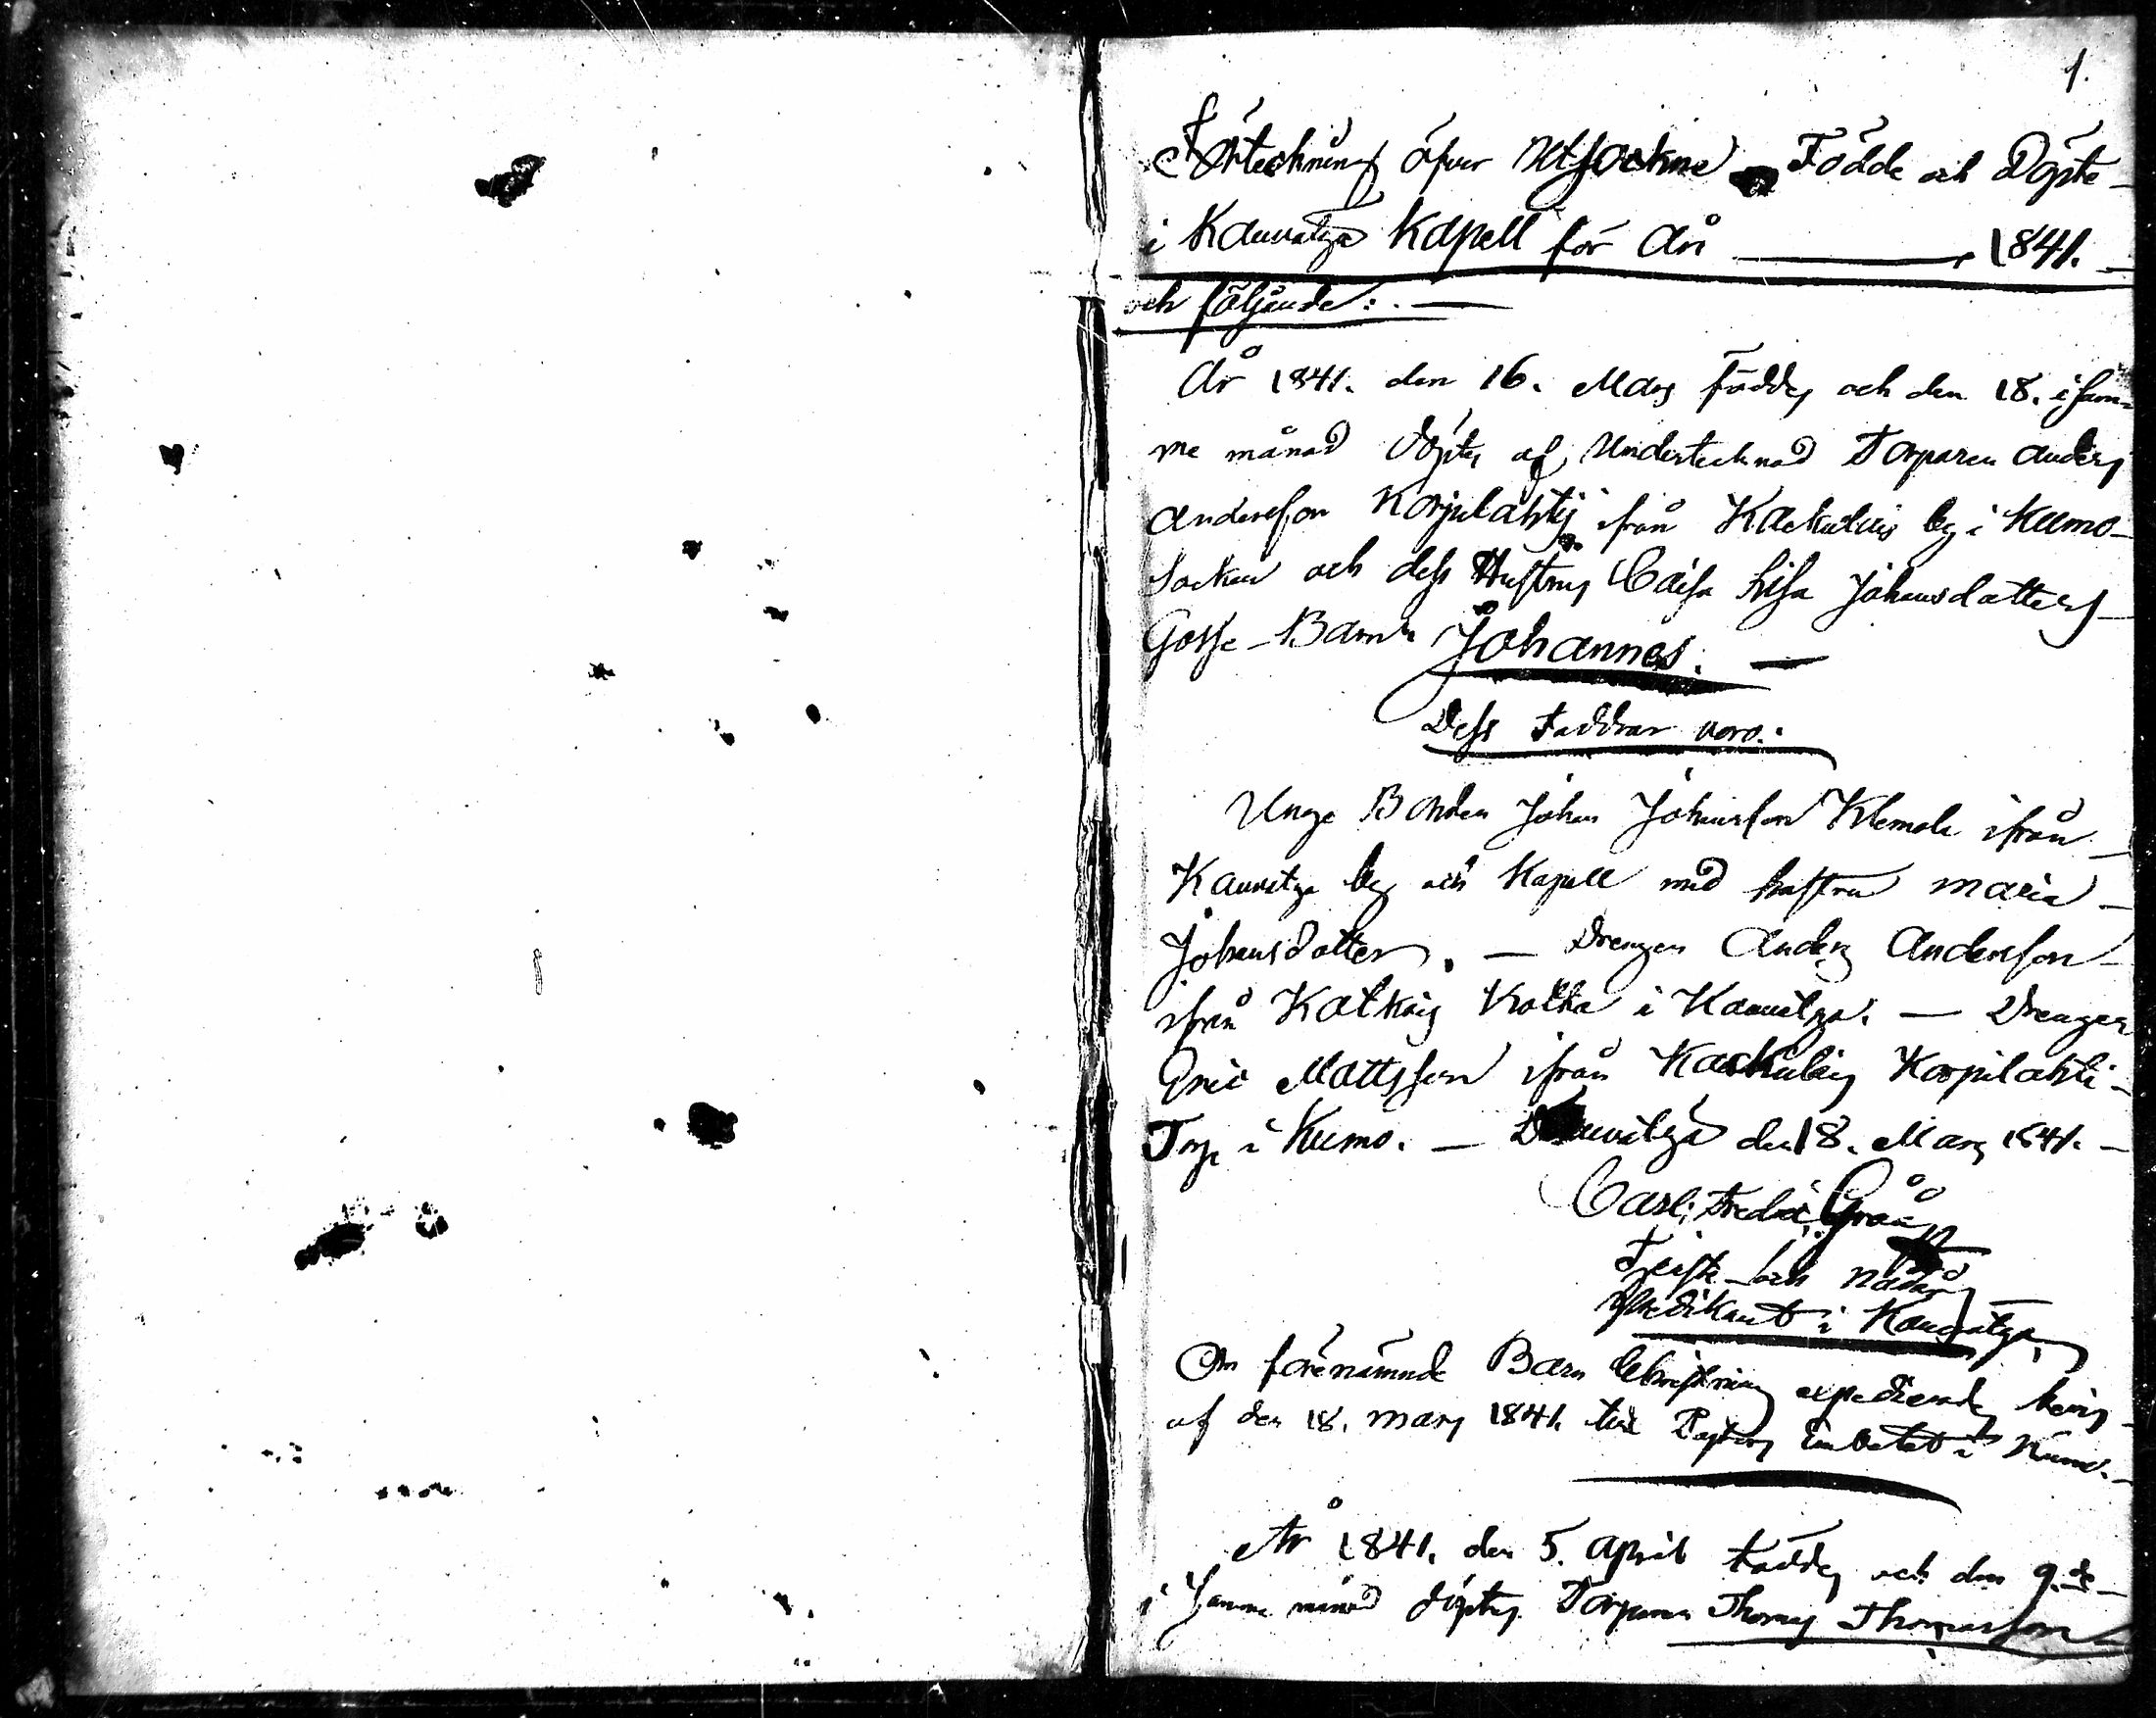 1.
Förteckning öfver Utsockne Födde och Döpte
i Kauvatza Kapell för År 1841.
och följande:
År 1841. den 16. Mars föddes och den 18. i sam-
me månad döptes af Undertecknad Torparen Anders
Andersson Korpilahti ifrån Kackulais by i Kumo
Socken och dess Hustrus Caisa Lisa Johansdotters
Gosse-Barn Johannes.
Dess Faddrar voro:
Unge Bonden Johan Johansson Klemola ifrån
Kauvatza by och Kapell med hustru Maria
Johansdotter. — Drengen Anders Andersson
ifrån Kotka i Kauvatza. — Drengen
Eric Mattsson ifrån Kackulais Korpilahti
Torp i Kumo. — Kauvatza den 18. Mars 1841.
Carl Fredric Gråå
och Nådårs
Predikant i Kauvatza
Om förenämnde Barns Christning expedierades bevis
af den 18. Mars 1841. till Pastors Embetet i Kumo.
År 1841. den 5. April föddes och den 9.de
i samma månad döptes Torparen Thomas Thomasson